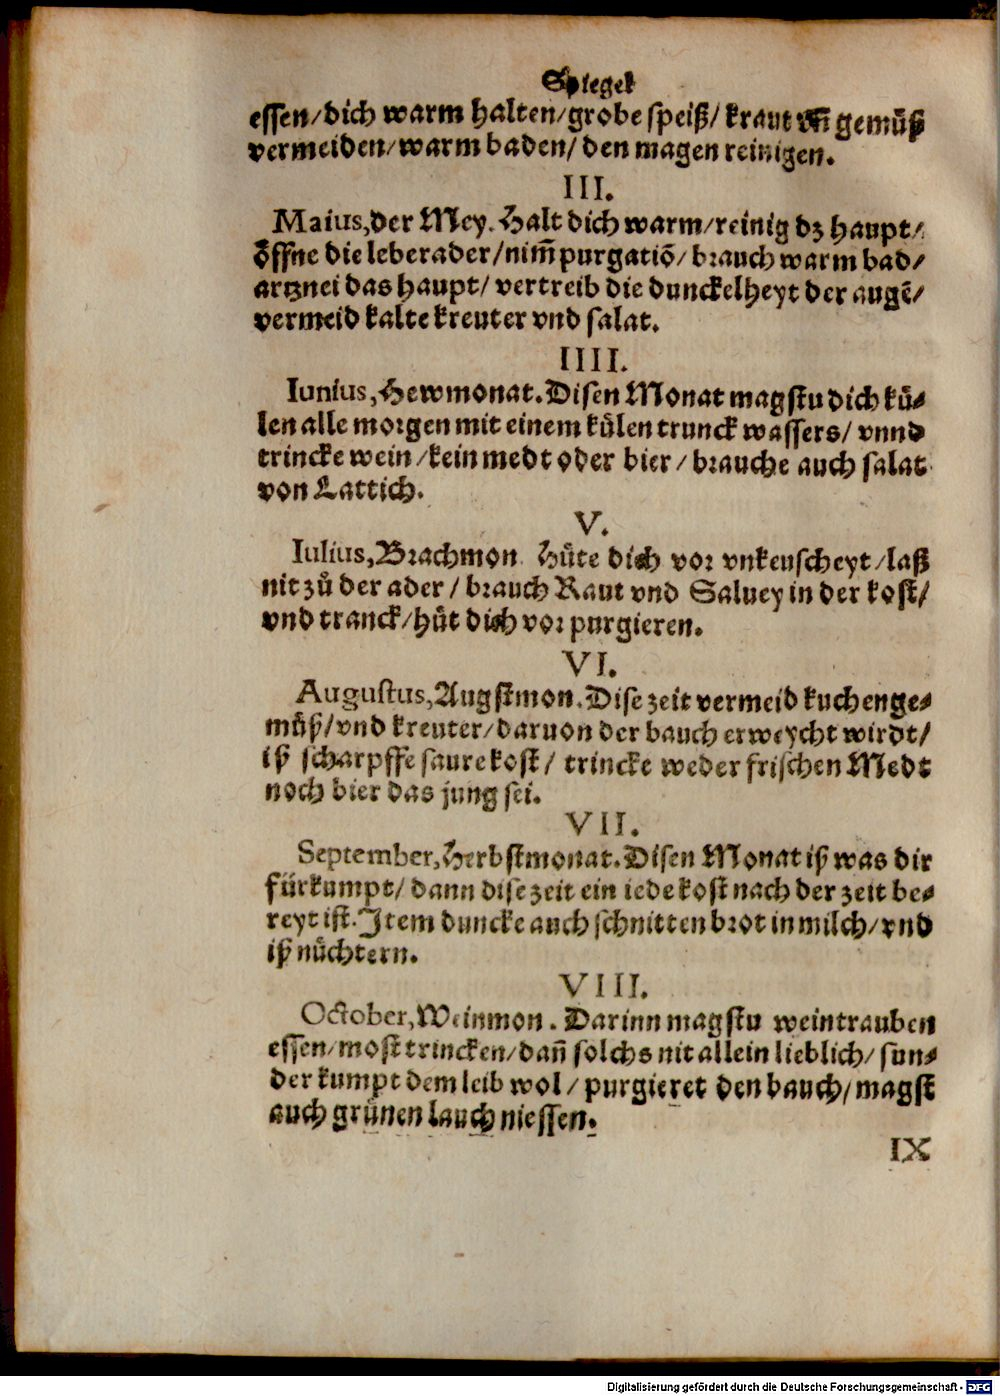 Spiegel
essen/dich warm halten/grobe speiß/ kraut vn̄ gemuͤß
vermeiden/warm baden/ den magen reinigen.
III.
Maius,der Mey. Halt dich warm/reinig dz haupt/
oͤffne die leberader/nim̄ purgatiō/ brauch warm bad/
artznei das haupt/ vertreib die dunckelheyt der augē/
vermeid kalte kreuter vnd salat.
IIII.
Iunius,Hewmonat.Disen Monat magstu dich kuͤ⸗
len alle morgen mit einem kuͤlen trunck wassers/ vnnd
trincke wein/kein medt oder bier/brauche auch salat
von Lattich.
V.
Iulius,Brachmon. Huͤte dich vor vnkeuscheyt/laß
nit zuͦ der ader/ brauch Raut vnd Saluey in der kost/
vnd tranck/huͤt dich vor purgieren.
VI.
Augustus,Augstmon.Dise zeit vermeid kuchenge⸗
muͤß/vnd kreuter/daruon der bauch erweycht wirdt/
iß scharpffe saure kost/ trincke weder frischen Medt
noch bier das jung sei.
VII.
September,Herbstmonat.Disen Monat iß was dir
fürkumpt/ dann dise zeit ein iede kost nach der zeit be⸗
reyt ist.Item duncke auch schnitten brot in milch/vnd
iß nuͤchtern.
VIII.
October,Weinmon. Darinn magstu weintrauben
essen/most trincken/dañ solchs nit allein lieblich/ sun⸗
der kumpt dem leib wol/ purgieret den bauch/magst
auch gruͤnen lauch niessen.
IX
Digitalisierung gefördert durch die Deutsche Forschungsgemeinschaft - DFG